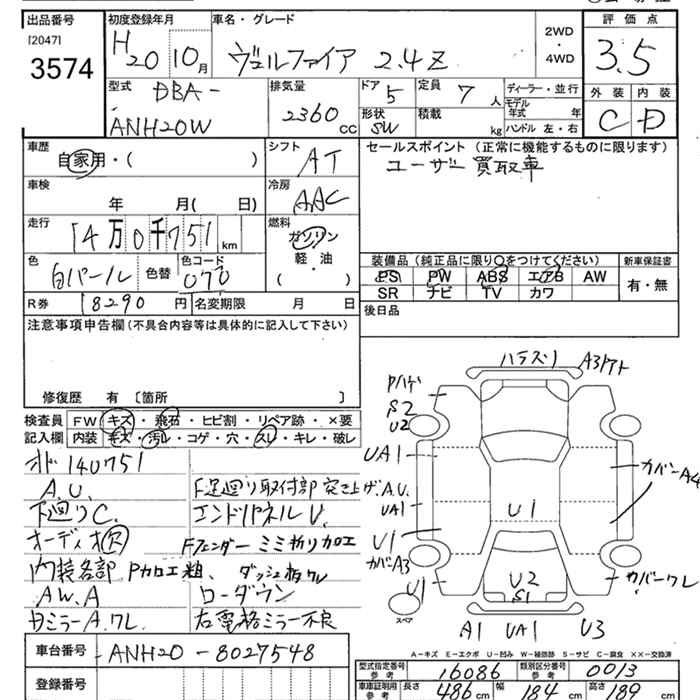 出品番号 初度登録年月 車名・グレード 評価点
[2047] H20 10月 ヴェルファイア 2.4Z 2WD・4WD 3.5
3574
型式 DBA- 排気量 ドア 5 定員 7人 ディーラー・並行 外装 内装
ANH20W 2360cc 形状 SW 積載 kg モデル年式 年 C D
ハンドル 左・右
車歴 シフト セールスポイント (正常に機能するものに限ります)
自家用・( ) AT ユーザー買取車
車検 冷房
年 月( 日) AAC
走行 燃料
14万0千751km ガソリン
軽・油
( )
装備品(純正品に限り○をつけてください) 新車保証書
色 色替 色コード PS PW ABS エアB AW 有・無
白パール 070 SR ナビ TV カワ
R券 18290円 名変期限 月 日 後日品
注意事項申告欄(不具合内容等は具体的に記入して下さい)
修復歴 有 〔箇所 〕
検査員 FW キズ・飛石・ヒビ割・リペア跡・×要
記入欄 内装 キズ・汚レ・コゲ・穴・スレ・キレ・破レ
140751
A.U. F足廻り取付部突き上げ.A.U.
下廻りC. エンドパネルU.
オーディオ欠 Fフェンダーミミ折り加工
内装各部 P加工粗、ダッシュ板ワレ
AW.A ローダウン
ミラーA.ワレ 右電格ミラー不良
車台番号 ANH20-8027548
登録番号
A3
S2
U2
UA1
UA1
U1
カバーA3
U1
スペア
カバーA4
カバーワレ
U1
U2
S1
A1 UA1 U3
A-キズ E-エクボ U-凹み W-補修跡 S-サビ C-腐食 XX-交換済
型式指定番号 参考 16086 類別区分番号 参考 0013
車車証明用 参考 長さ 486cm 幅 184cm 高さ 189cm